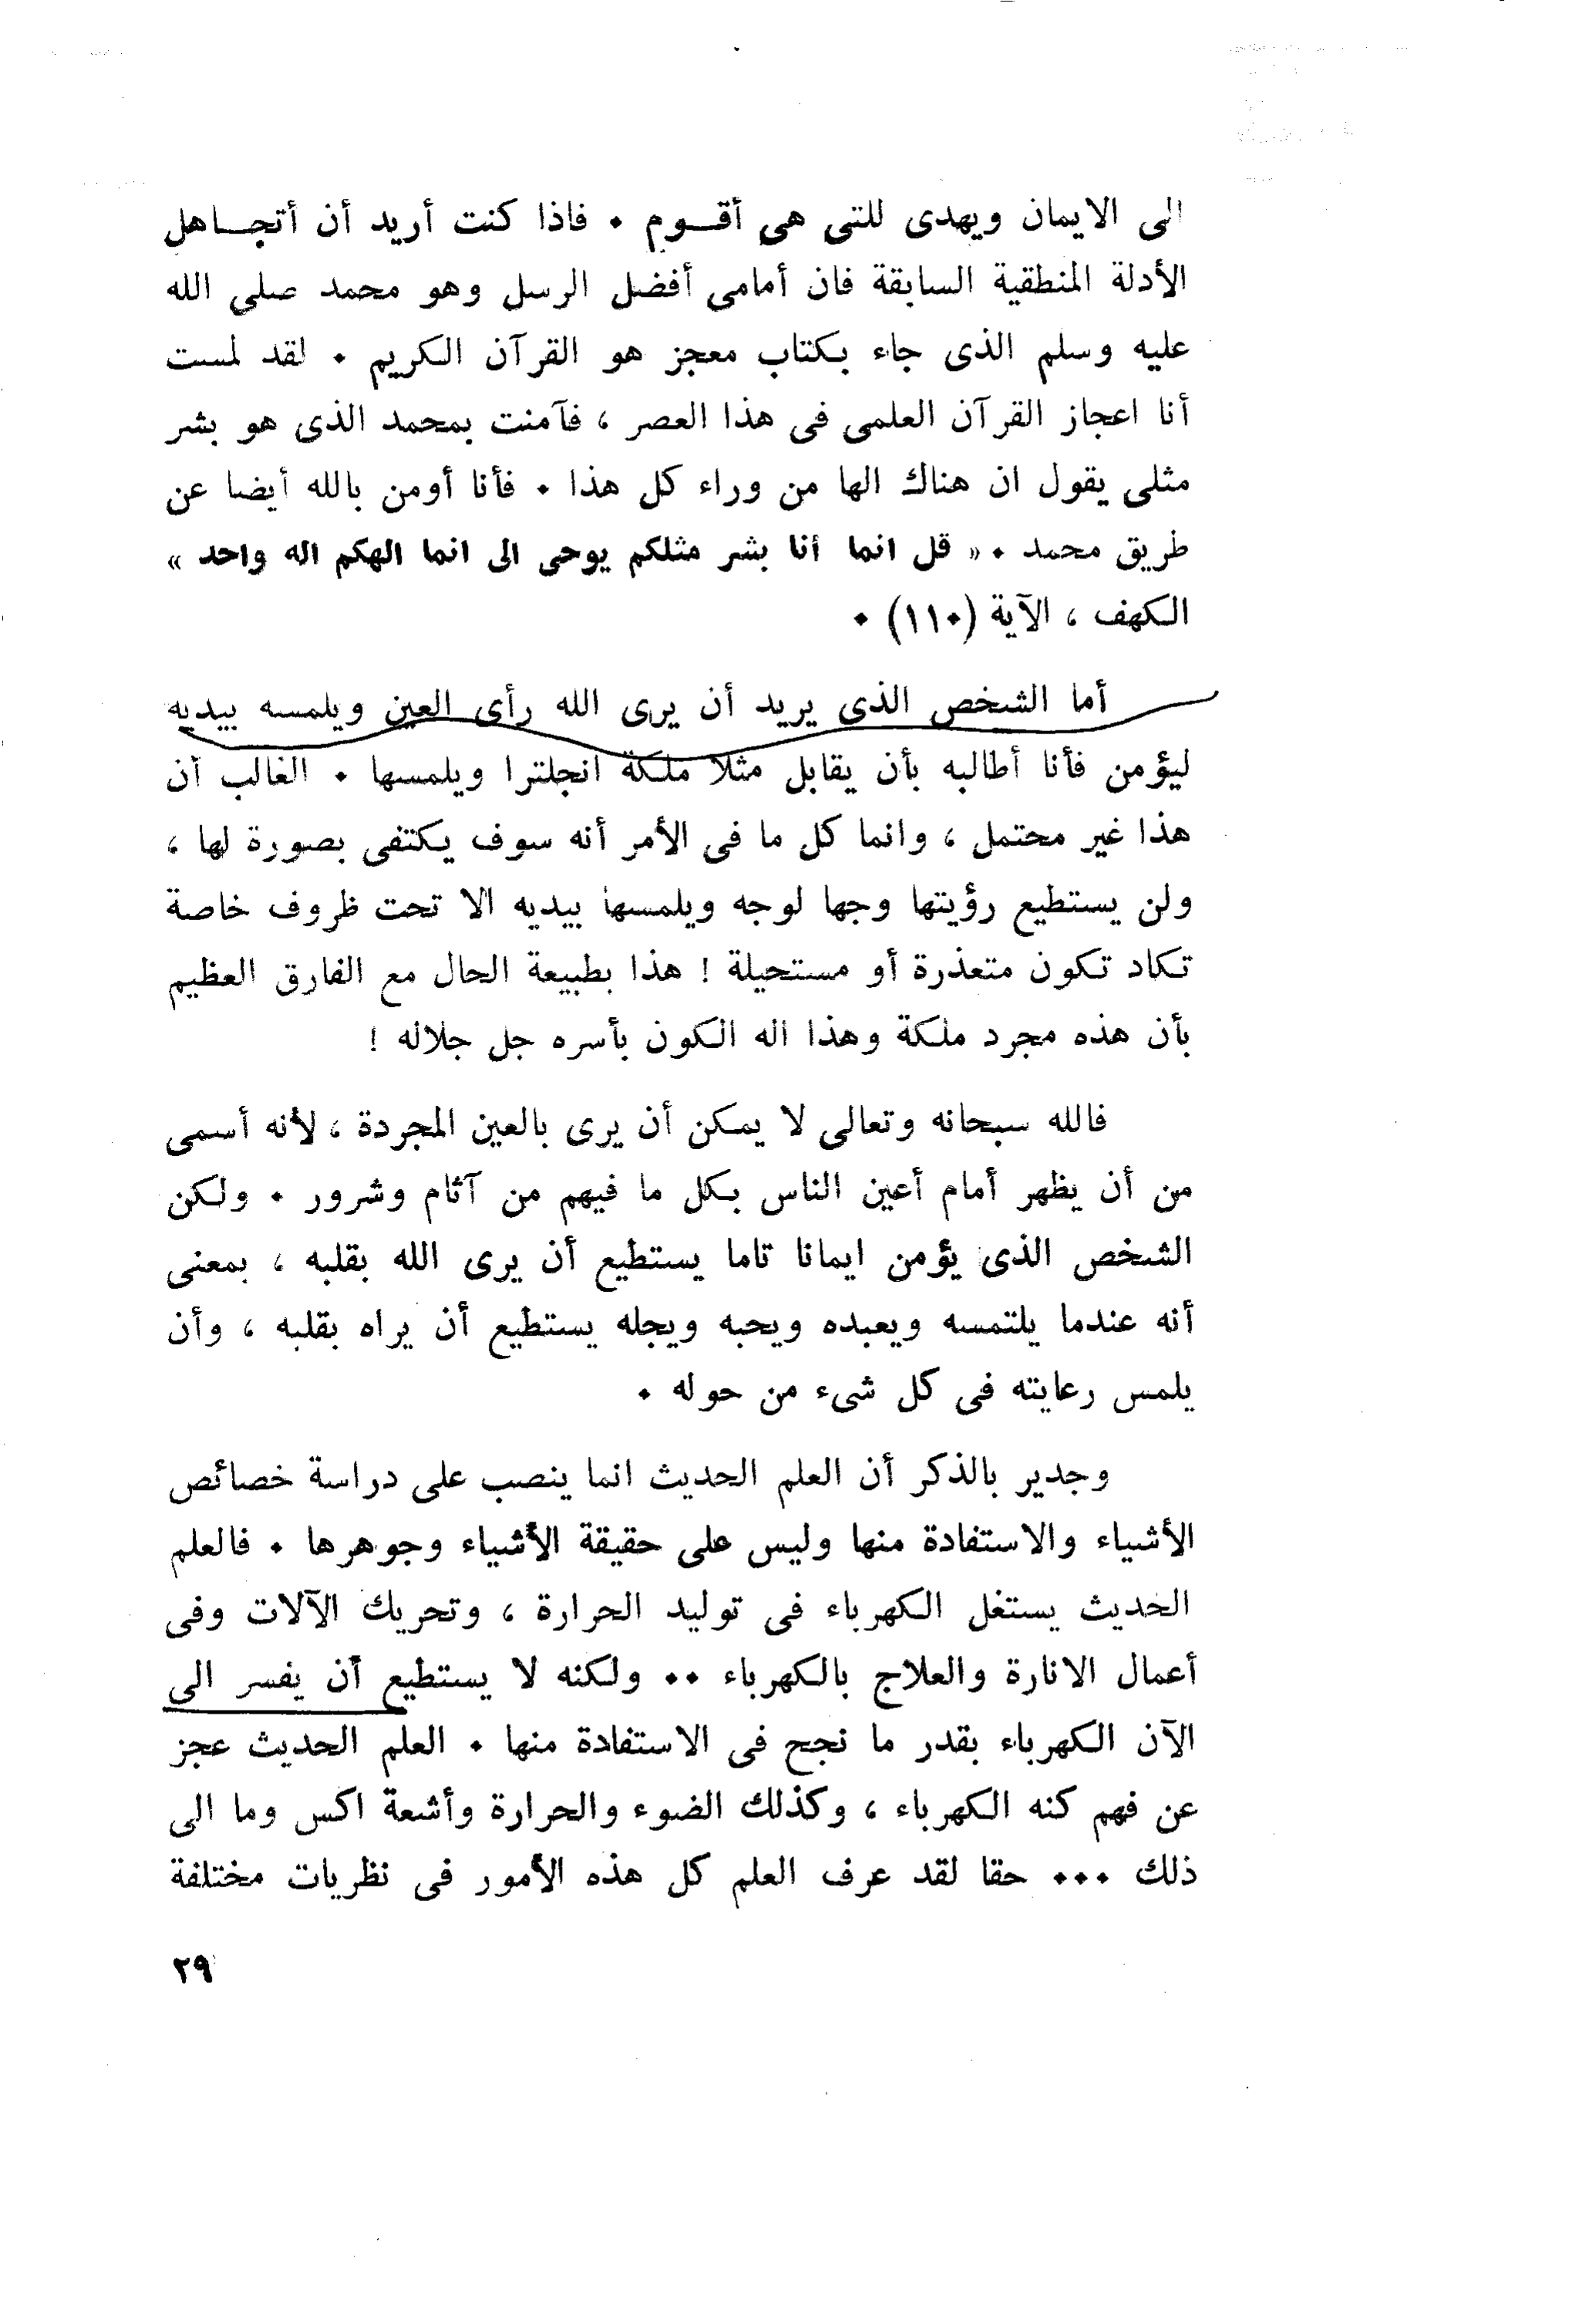 الى الايمان ويهدى للتى هى أقـــوم • فاذا كنت أريد أن أتجــاهل
الأدلة المنطقية السابقة فان أمامى أفضل الرسل وهو محمد صلى الله
عليه وسلم الذى جاء بكتاب معجز هو القرآن الكريم • لقد لمست
أنا اعجاز القرآن العلمى فى هذا العصر ، فآمنت بمحمد الذى هو بشر
مثلى يقول ان هناك الها من وراء كل هذا • فأنا أومن بالله أيضا عن
طريق محمد • « قل انما أنا بشر مثلكم يوحى الى انما الهكم اله واحد »
الكهف ، الآية (١١٠) •
أما الشخص الذى يريد أن يرى الله رأى العين ويلمسه بيديه
ليؤمن فأنا أطالبه بأن يقابل مثلا ملكة انجلترا ويلمسها • الغالب أن
هذا غير محتمل ، وانما كل ما فى الأمر أنه سوف يكتفى بصورة لها ،
ولن يستطيع رؤيتها وجها لوجه ويلمسها بيديه الا تحت ظروف خاصة
تكاد تكون متعذرة أو مستحيلة ! هذا بطبيعة الحال مع الفارق العظيم
بأن هذه مجرد ملكة وهذا اله الكون بأسره جل جلاله !
فالله سبحانه وتعالى لا يمكن أن يرى بالعين المجردة ، لأنه أسمى
من أن يظهر أمام أعين الناس بكل ما فيهم من آثام وشرور • ولكن
الشخص الذى يؤمن ايمانا تاما يستطيع أن يرى الله بقلبه ، بمعنى
أنه عندما يلتمسه ويعبده ويحبه ويجله يستطيع أن يراه بقلبه ، وأن
يلمس رعايته فى كل شىء من حوله •
وجدير بالذكر أن العلم الحديث انما ينصب على دراسة خصائص
الأشياء والاستفادة منها وليس على حقيقة الأشياء وجوهرها • فالعلم
الحديث يستغل الكهرباء فى توليد الحرارة ، وتحريك الآلات وفى
أعمال الانارة والعلاج بالكهرباء •• ولكنه لا يستطيع أن يفسر الى
الآن الكهرباء بقدر ما نجح فى الاستفادة منها • العلم الحديث عجز
عن فهم كنه الكهرباء ، وكذلك الضوء والحرارة وأشعة اكس وما الى
ذلك ••• حقا لقد عرف العلم كل هذه الأمور فى نظريات مختلفة
٢٩